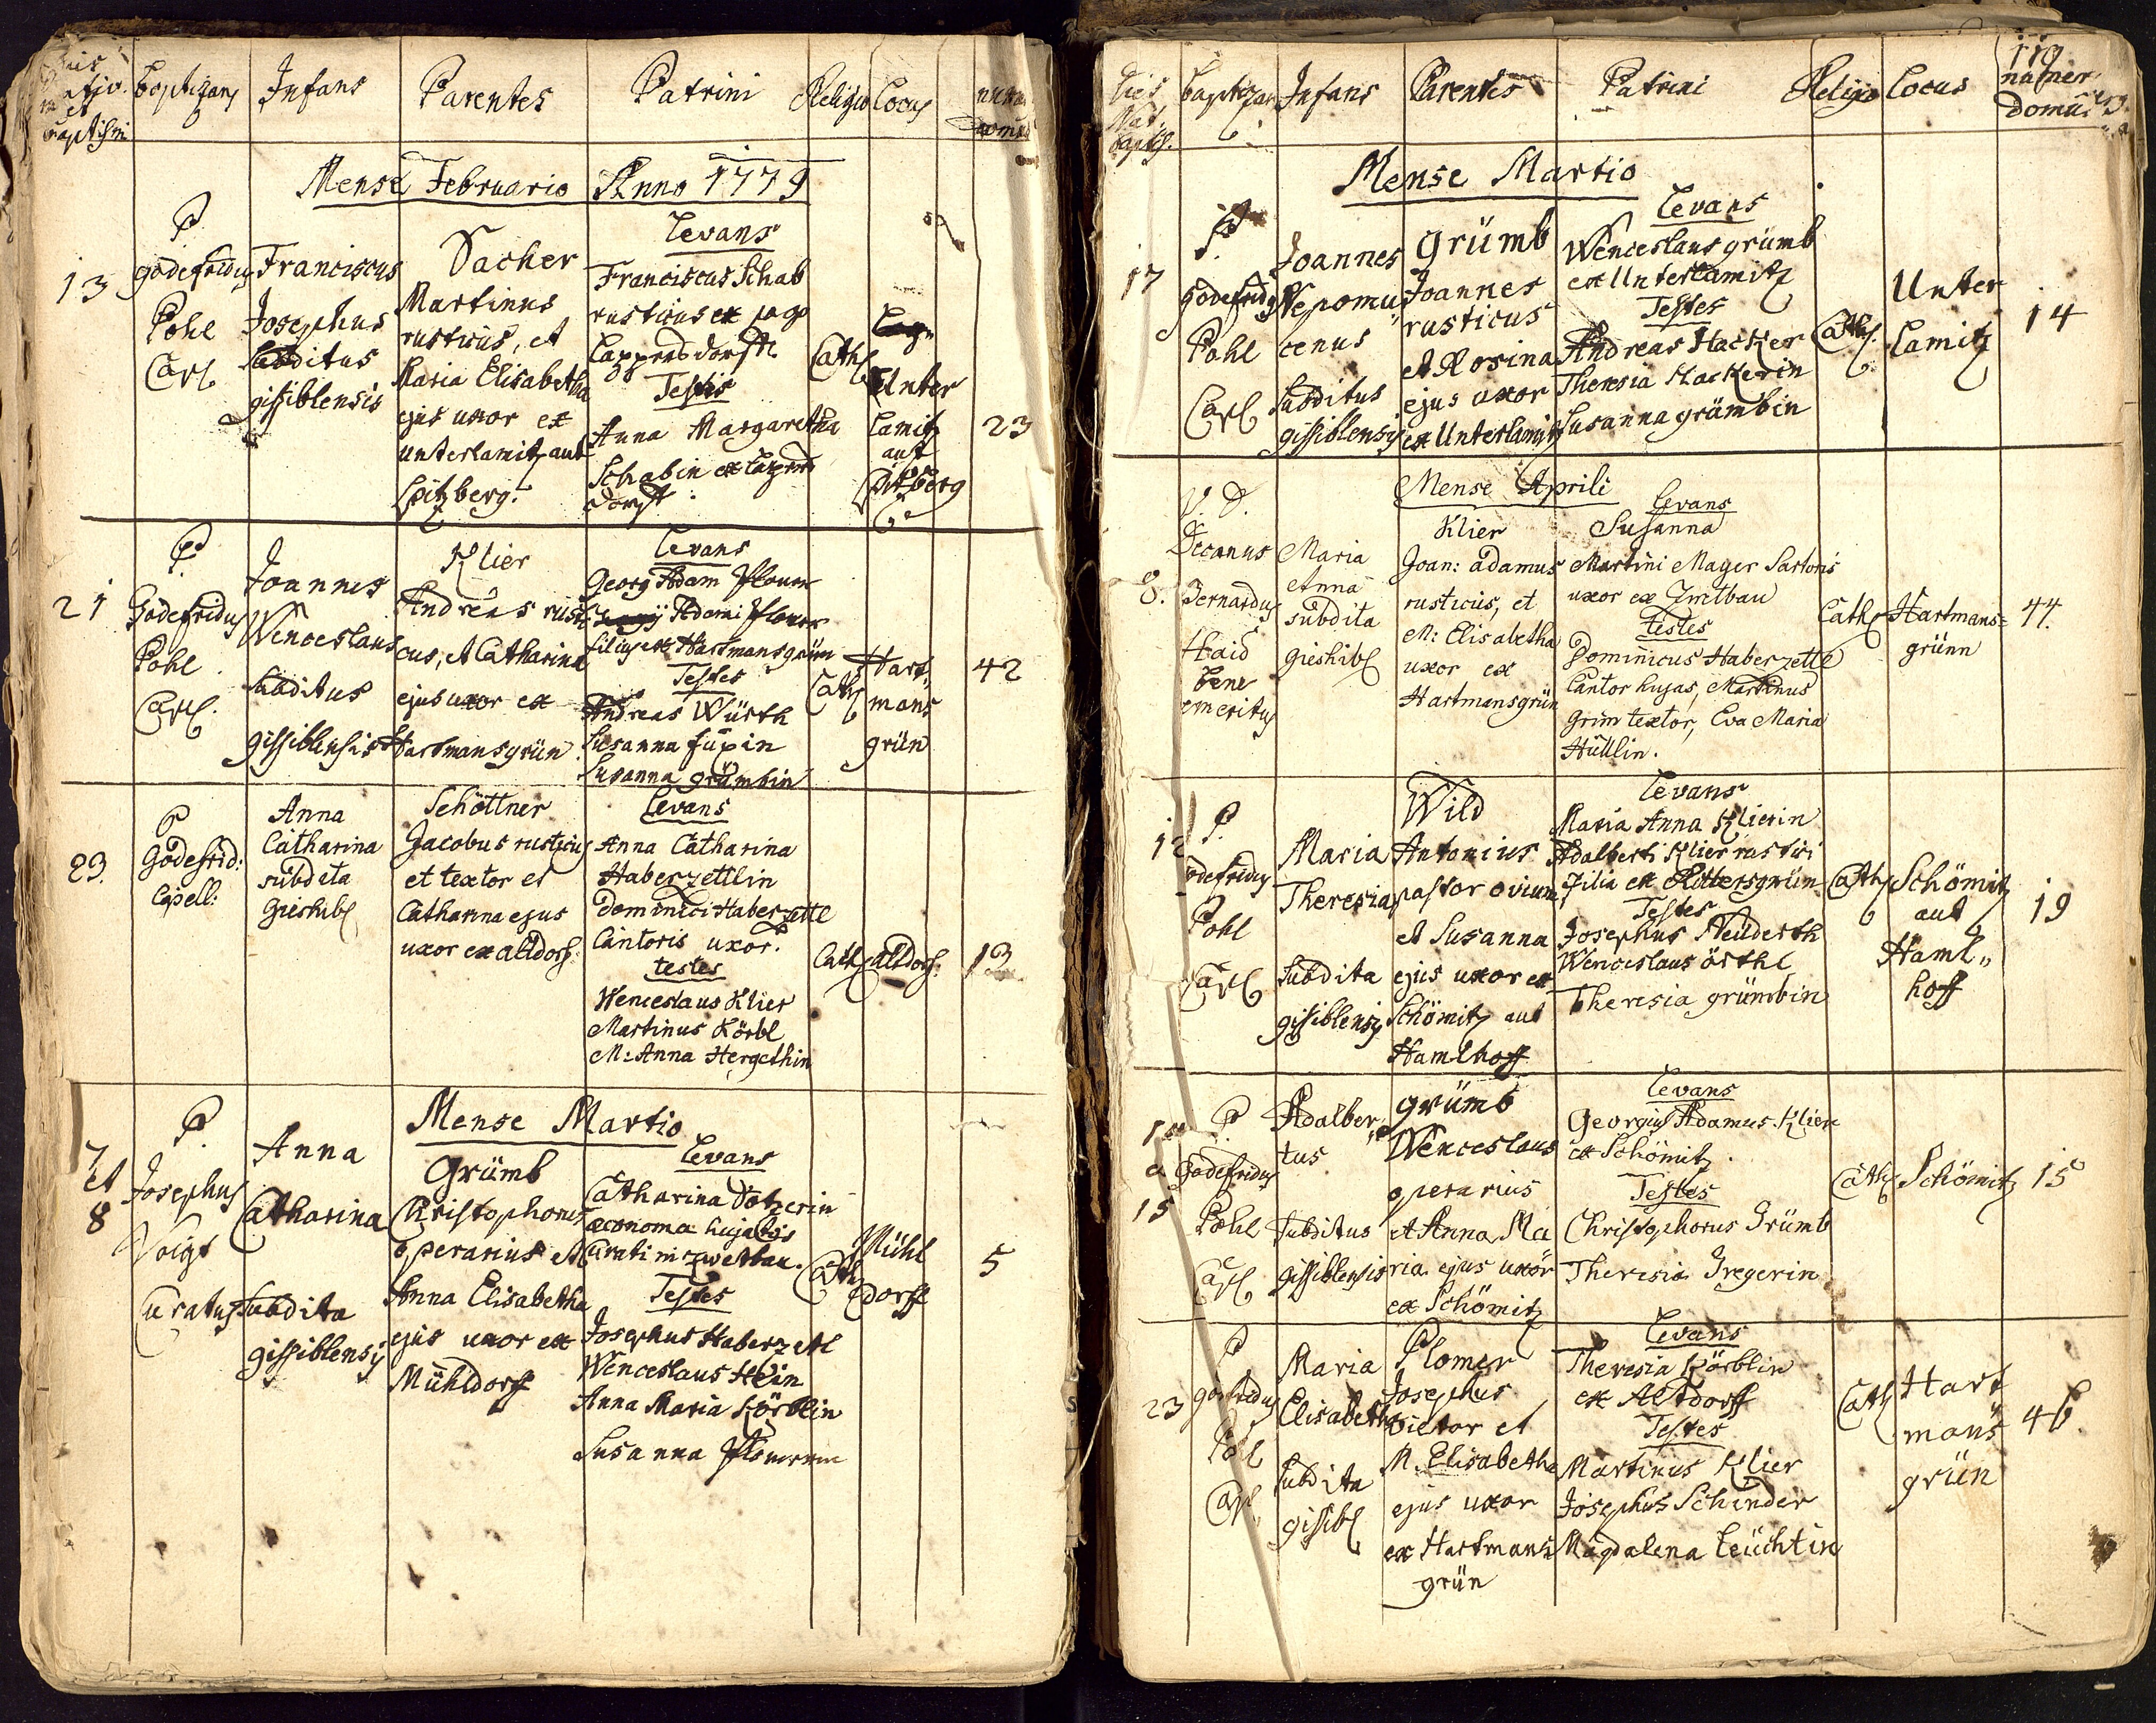 Baptizans Infans Parentes Patrini Religio Locus
Baptismi
Mense Februario Anno 1779
13
P.
Godefridus
Pohl
Cap
Franciscus
Josephus
Subditus
gissiblensis
Sacher
Martinus
rusticus, et
Maria Elisabetha
ejus uxor ex
unterlamitz aut
Spitzberg.
Levans
Franciscus Schab
rusticus ex pago
Testis
Anna Margaretha
Schabin ex
dorff
Cath
Unter
Lamitz
aut
Spitzberg
23
21
P.
Godefridus
Pohl
Cap.
Joannes
Wenceslaus
Subditus
gissiblensis
Klier
Andreas rusti
cus, et Catharina
ejus uxor ex
Hartmansgrün
Levans
Georg Adam Plomer
Adami Plomer
filius ex Hartmansgrün
Testes
Andreas Würth
Susanna
Susanna grümbin
Cath
Hart„
mans
grün
42
23.
P
Godefrid:
Capell:
Anna
Catharina
subdita
Gieshib
Schöttner
Jacobus rusticus
et textor et
Catharina ejus
uxor ex altdorf
Levans
Anna Catharina
Haberzettlin
Dominici Haberzettl
Cantoris uxor.
testes
Wenceslaus Klier
Martinus Körbl
M: Anna Hergethin
Cath
altdorf.
13
Mense Martio
7
et
8
P.
Josephus
Voigt
Curatus
Anna
Catharina
Subdita
gissiblensis
Grümb
Christophorus
operarius et
Anna Elisabetha
ejus uxor ex
Mühldorff
Levans
Catharina
oeconoma hujatis
Curati in zwetbau.
Testes
Josephus Haberzettl
Wenceslaus Hein
Anna Maria Körblin
Susanna
Cath
Mühl
dorff
5
119
Dies
Nat.
Bapt.
Baptizans Infans Parentes Patrini Religio Locus numer
domus
Mense Martio
17
P.
Godefridus
Pohl
Cap
Joannes
Nepomu„
cenus
Subditus
gissiblensis
Grümb
Joannes
rusticus
et Rosina
ejus uxor
ex Unterlamitz
Levans
Wenceslaus grümb
ex Unterlamitz
Testes
Andreas Hacker
Theresia Hackerin
Susanna grümbin
Cath.
Unter
Lamitz
14
Mense Aprili
8.
Decanus
Bernardus
Haid
bene
emeritus
Maria
Anna
subdita
gieshib
Klier
Joan: adamus
rusticus, et
M: Elisabetha
uxor ex
Hartmansgrün
Levans
Susanna
Martini Mager Sartoris
uxor ex Zwetbau
testes
Dominicus Haberzettl
Cantor hujas, Martinus
Grim textor, Eva Maria
Hüllin.
Cath
Hartmans=
grünn
44.
12
P.
Godefridus
Pohl
Cap
Maria
Theresia
Subdita
gissiblensis
Wild
Antonius
pastor ovium
et Susanna
ejus uxor ex
Schömitz aut
Hamlhoff
Levans
Maria Anna Klierin
Adalberti Klier rustici
Filia ex Rittersgrün
Testes
Josephus Neuderth
Wenceslaus örthl
Theresia grümbin
Cath
Schömitz
aut
Haml„
hoff
19
15
P.
Godefridus
Pohl
Cap
Adalber„
tus
Subditus
gissiblensis
grümb
Wenceslaus
operarius
et Anna Ma
ria ejus uxor
ex Schömitz
Levans
Georgius Adamus Klier
ex Schömitz.
Testes
Christophorus Grümb
Theresia Gregerin
Cath
Schömitz
15
23
P
Pohl
Cap
Maria
Elisabetha
Subdita
gissib
Plomer
Josephus
vietor et
M. Elisabetha
ejus uxor
ex Hartmans
grün
Levans
Theresia Körblin
ex Altdorff
Testes
Martinus Klier
Josephus Schinder
Magdalena Leuchtin
Cath
Hart
mans
grün